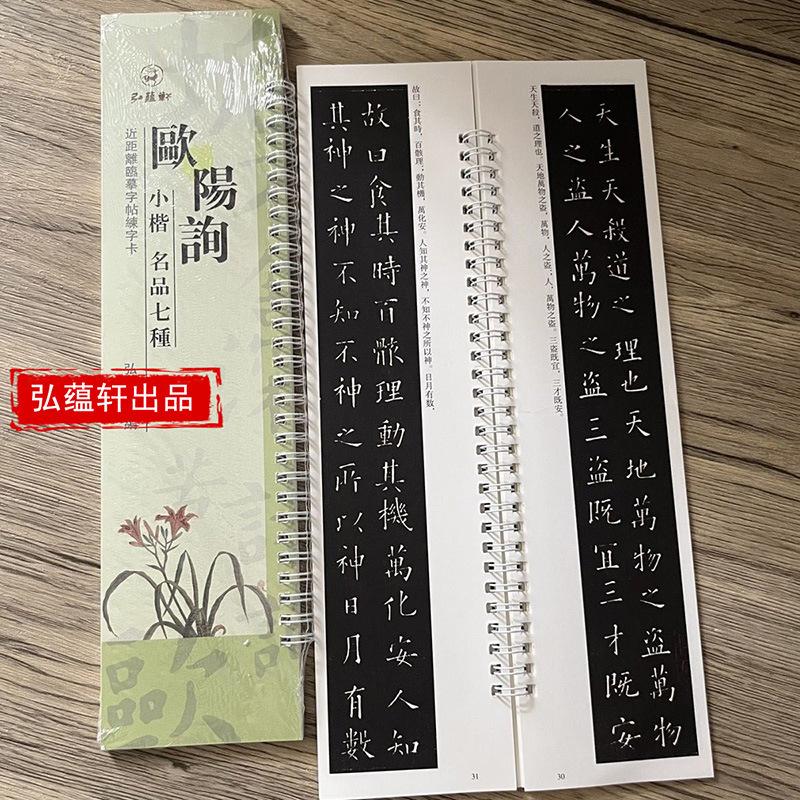 弘蘊軒
歐陽詢
小楷 名品七種
近距離臨摹字帖練字卡
弘蕴轩出品
天生天殺道之理也天地萬物之盜萬物
人之盜人萬物之盜三盜既冝三才既安
天生天殺，道之理也。天地萬物之盜，萬物，人之盜；人，萬物之盜。三盜既宜，三才既安。
30
故曰食其時百骸理動其機萬化安人知
其神之神不知不神之所以神日月有數
故曰：食其時，百骸理；動其機，萬化安。人知其神之神，不知不神之所以神。日月有數，
31